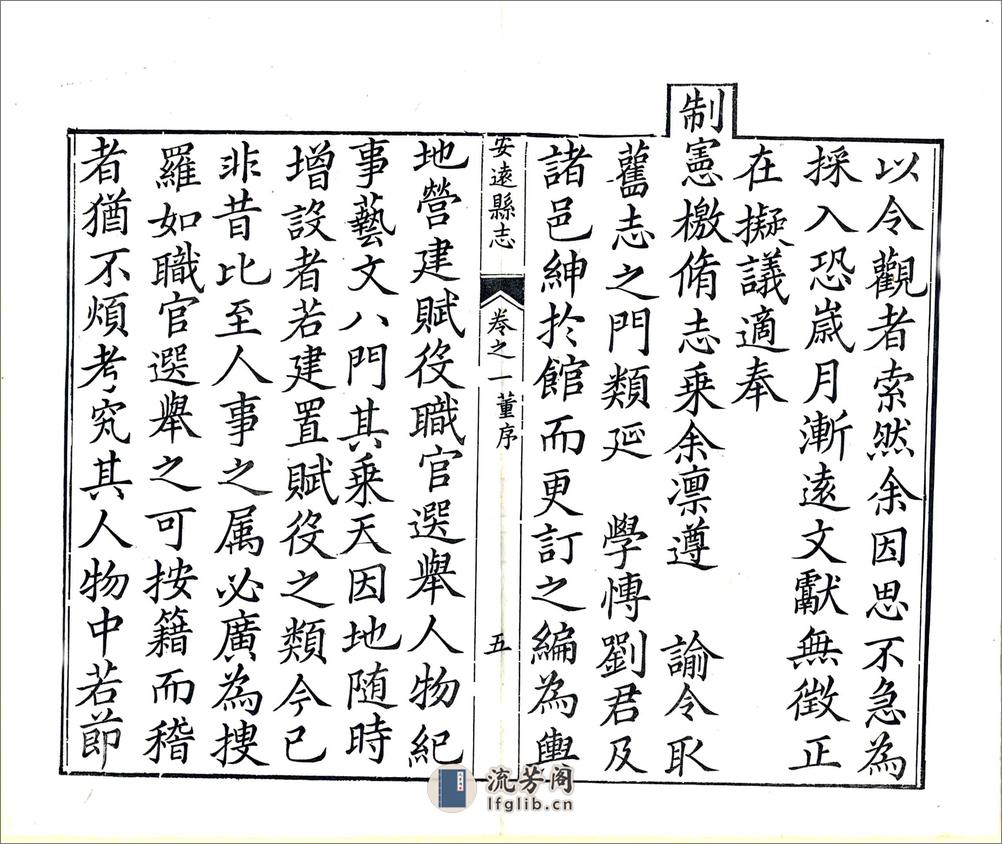 以令觀者索然余因思不急為
採入恐嵗月漸逺文獻無徵正
在擬議適奉
制憲檄脩志乗余凛遵　諭令取
舊志之門類延　學博劉君及
諸邑紳扵館而更訂之編為輿
安逺縣志　卷之一董序　五
地營建賦役職官選舉人物紀
事藝文八門其乗天因地随時
增設者若建置賦役之類今已
非昔比至人事之属必廣為搜
羅如職官選舉之可按籍而稽
者猶不煩考究其人物中若節
流芳阁
lfglib.cn